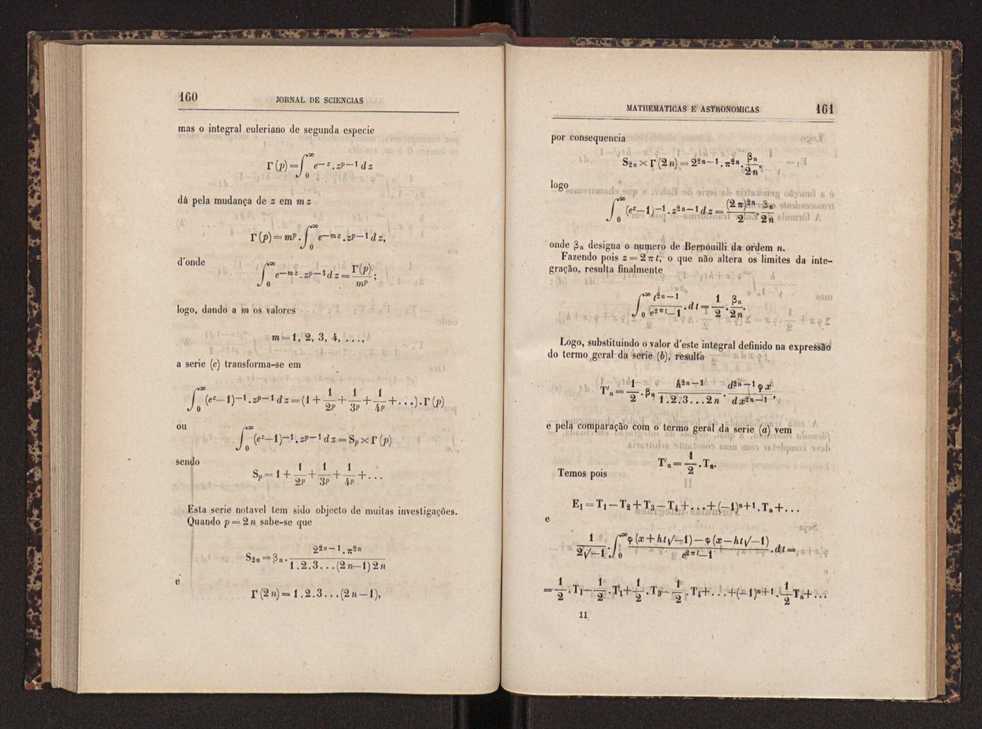 160 JORNAL DE SCIENCIAS
mas o integral euleriano de segunda especie
Γ(p)=∫₀^∞ e^{−z}.z^{p−1} dz
dá pela mudança de z em mz
Γ(p)=m^p.∫₀^∞ e^{−mz}.z^{p−1} dz,
d'onde
∫₀^∞ e^{−mz}.z^{p−1} dz = Γ(p)/m^p;
logo, dando a m os valores
m=1, 2, 3, 4, ...,
a serie (c) transforma-se em
∫₀^∞ (e^z−1)^{−1}.z^{p−1} dz=(1+1/2^p+1/3^p+1/4^p+...).Γ(p)
ou
∫₀^∞ (e^z−1)^{−1}.z^{p−1} dz=S_p×Γ(p)
sendo
S_p=1+1/2^p+1/3^p+1/4^p+...
Esta serie notavel tem sido objecto de muitas investigações.
Quando p=2n sabe-se que
S_{2n}=β_n. 2^{2n−1}.π^{2n}/1.2.3...(2n−1)2n
e
Γ(2n)=1.2.3...(2n−1),
MATHEMATICAS E ASTRONOMICAS 161
por consequencia
S_{2n}×Γ(2n)=2^{2n−1}.π^{2n}.β_n/2n,
logo
∫₀^∞ (e^z−1)^{−1}.z^{2n−1} dz=(2π)^{2n}/2.β_n/2n
onde β_n designa o numero de Bernouilli da ordem n.
Fazendo pois z=2πt, o que não altera os limites da inte-
gração, resulta finalmente
∫₀^∞ t^{2n−1}/e^{2πt}−1.dt=1/2.β_n/2n.
Logo, substituindo o valor d'este integral definido na expressão
do termo geral da serie (b), resulta
T'_n=1/2.β_n h^{2n−1}/1.2.3...2n.d^{2n−1}φx/dx^{2n−1},
e pela comparação com o termo geral da serie (a) vem
T'_n=1/2.T_n.
Temos pois
E₁=T₁−T₂+T₃−T₄+...+(−1)^{n+1}.T_n+...
e
1/2√−1.∫₀^∞ φ(x+ht√−1)−φ(x−ht√−1)/e^{2πt}−1.dt=
=1/2.T₁−1/2.T₁+1/2.T₃−1/2.T₄+...+(−1)^{n+1}.1/2T_n+...
11